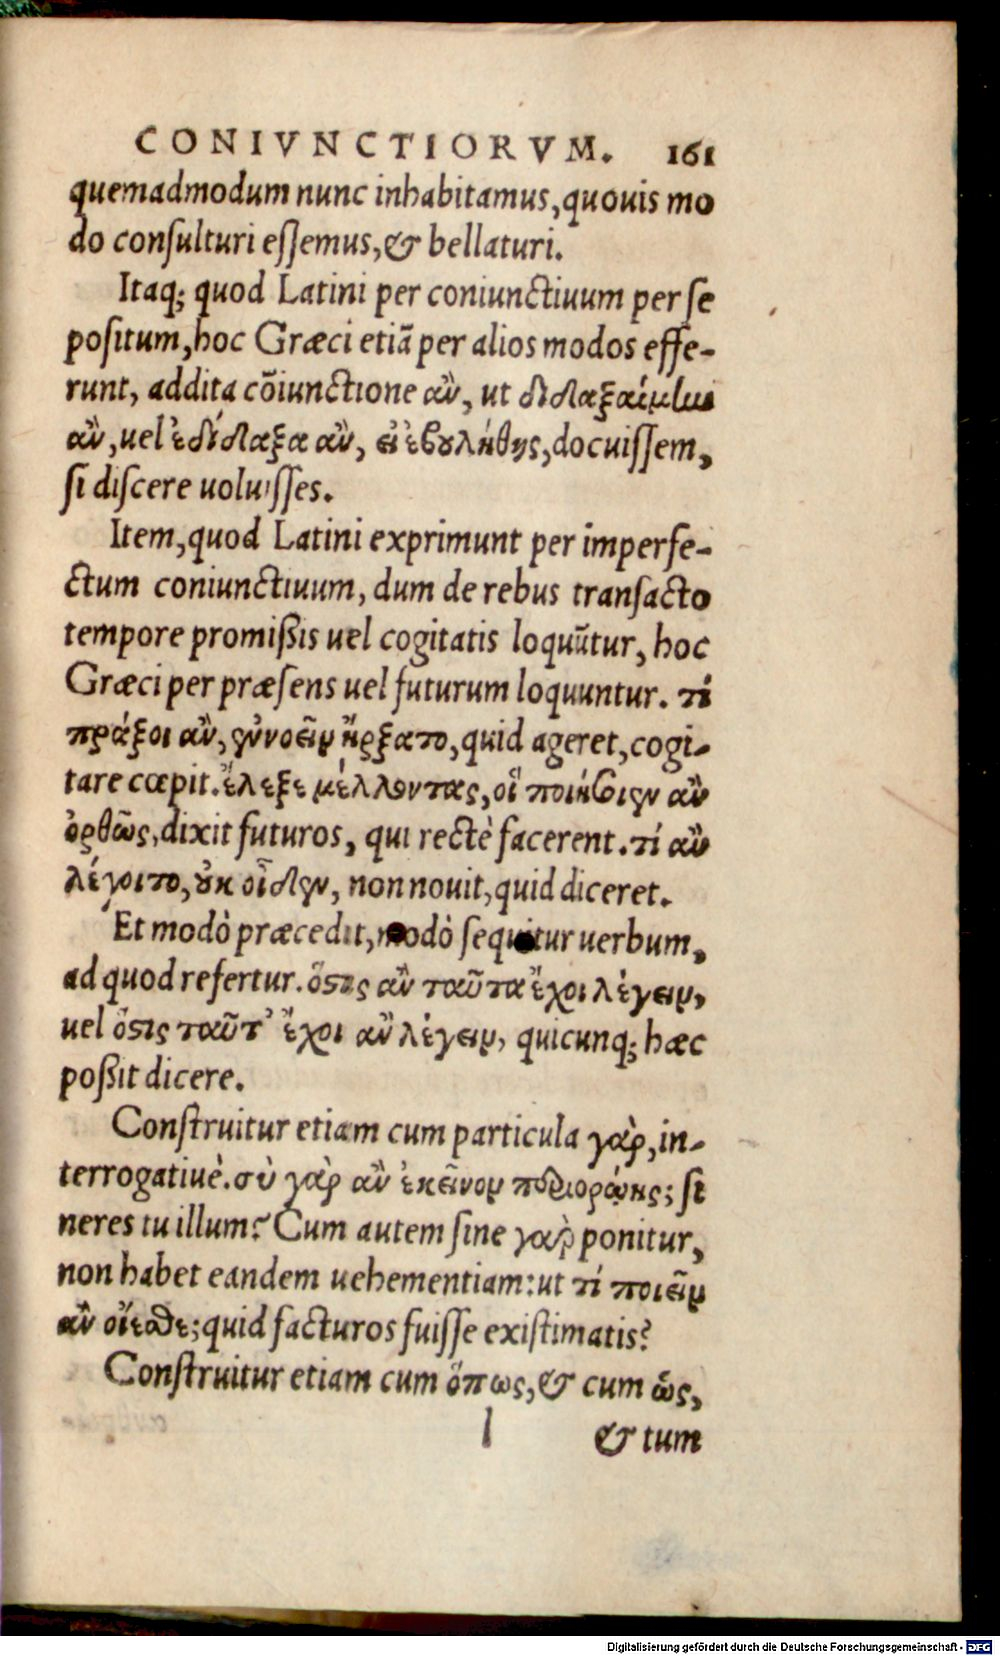 CONIVNCTIORVM. 161
quemadmodum nunc inhabitamus, quouis mo
do consulturi essemus, & bellaturi.
Itaq; quod Latini per coniunctiuum per se
positum, hoc Græci etiã per alios modos effe-
runt, addita cõiunctione ἂν, ut διδαξαίμην
ἂν, uel ἐδίδαξα ἂν, εἰ ἐβουλήθης, docuissem,
si discere uoluisses.
Item, quod Latini exprimunt per imperfe-
ctum coniunctiuum, dum de rebus transacto
tempore promißis uel cogitatis loquũtur, hoc
Græci per præsens uel futurum loquuntur. τί
πράξοι ἂν, συννοεῖν ἤρξατο, quid ageret, cogi-
tare cœpit. ἔλεξε μέλλοντας, οἳ ποιήσειαν ἂν
ὀρθῶς, dixit futuros, qui rectè facerent. τί ἂν
λέγοιτο, οὐκ οἶδεν, non nouit, quid diceret.
Et modò præcedit, modò sequitur uerbum,
ad quod refertur. ὅστις ἂν ταῦτα ἔχοι λέγειν,
uel ὅστις ταῦτ' ἔχοι ἂν λέγειν, quicunq; hæc
poßit dicere.
Construitur etiam cum particula γὰρ, in-
terrogatiuè. σὺ γὰρ ἂν ἐκεῖνον περιορῴης; si
neres tu illum? Cum autem sine γὰρ ponitur,
non habet eandem uehementiam: ut τί ποιεῖν
ἂν οἴεσθε; quid facturos fuisse existimatis?
Construitur etiam cum ὅπως, & cum ὡς,
l & tum
Digitalisierung gefördert durch die Deutsche Forschungsgemeinschaft - DFG